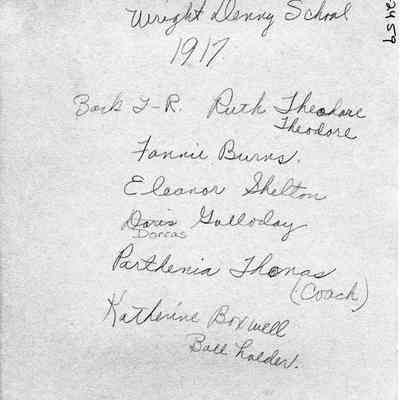 Wright Denny School
1917
Back L-R. Ruth Theodore
Theodore
Fannie Burns.
Eleanor Shelton
Doris Golloday
Dorcas
Parthenia Thomas
(Coach)
Katherine Boxwell
Ball holder.
2459